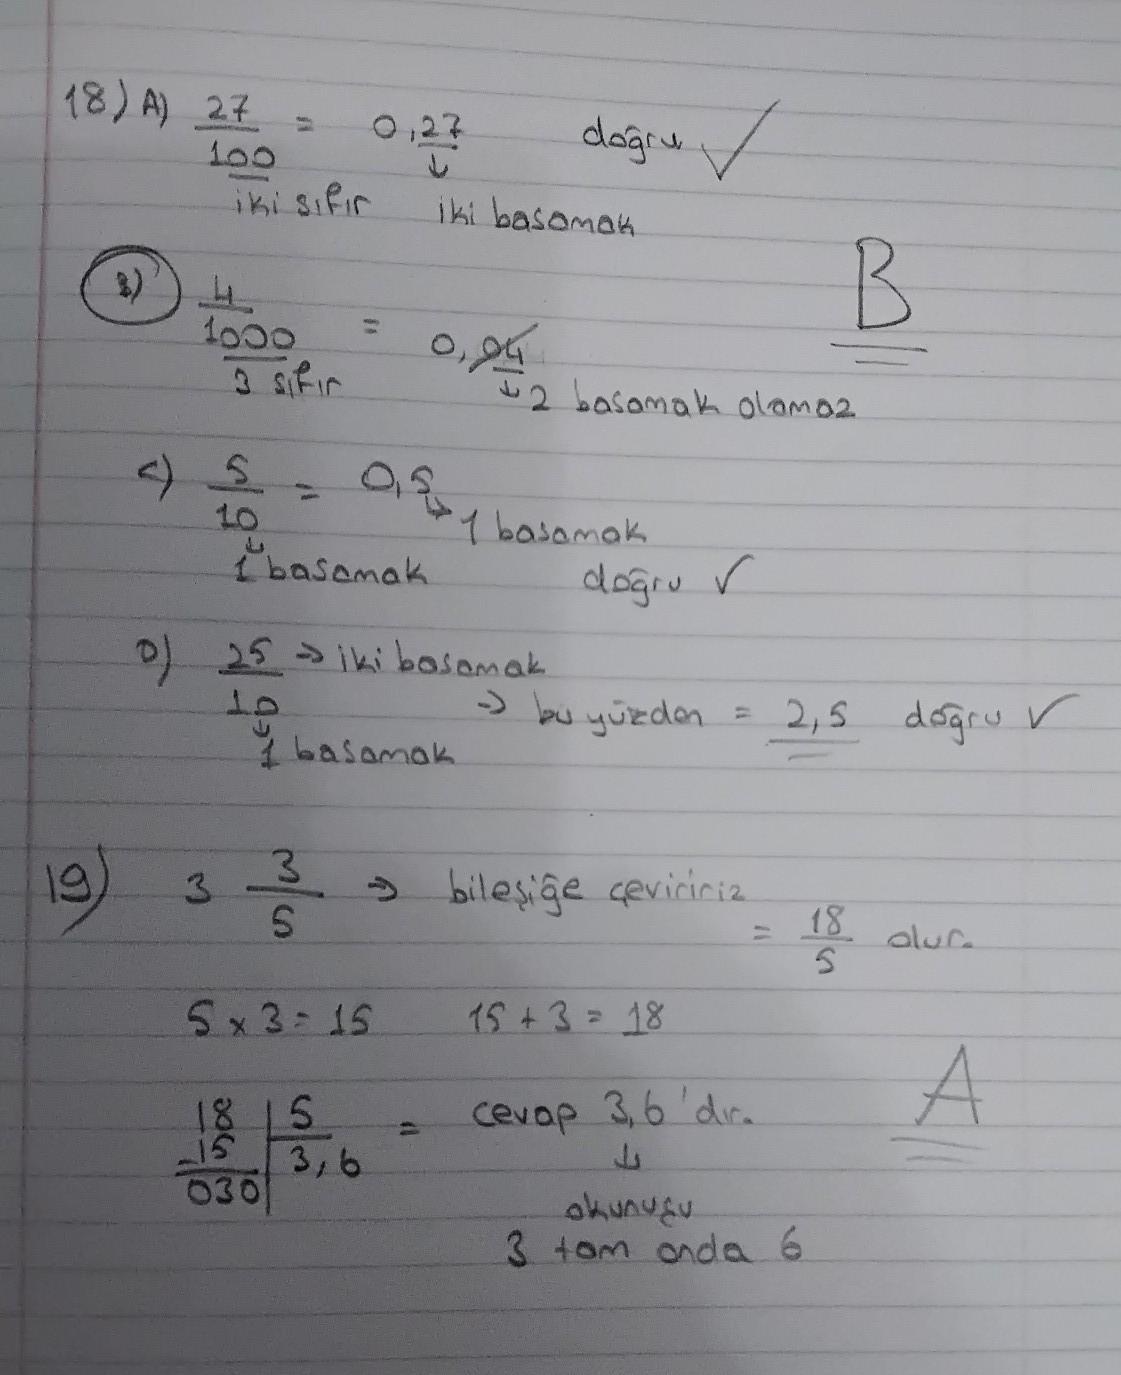 18) A) 27/100 = 0,27 doğru ✓
iki sıfır iki basamak
B) 4/1000 = 0,04 B
3 sıfır 2 basamak olamaz
C) 5/10 = 0,5
1 basamak
1 basamak doğru ✓
D) 25/10 → iki basamak
→ bu yüzden = 2,5 doğru ✓
1 basamak
19) 3 3/5 ⇒ bileşiğe çeviririz
= 18/5 olur.
5 x 3 = 15 15 + 3 = 18
A
18 | 5 = cevap 3,6'dır.
-15 3,6
030
okunuşu
3 tam onda 6